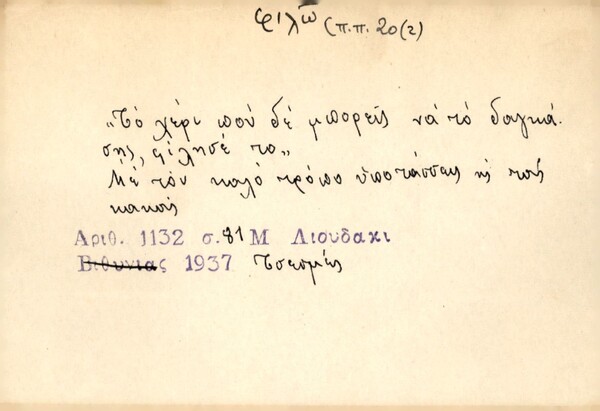 φιλῶ (π.π. 20(2)
„Τὸ χέρι ποὺ δέ μπορεῖς νά τό δαγκά-
σῃς, φίλησέ το„
Μέ τόν καλό τρόπο ὑποτάσσεις κ̀ τούς
κακούς
Αριθ. 1132 σ. 81 Μ Λιουδακι
Βιθυνιας 1937 Τσεσμές